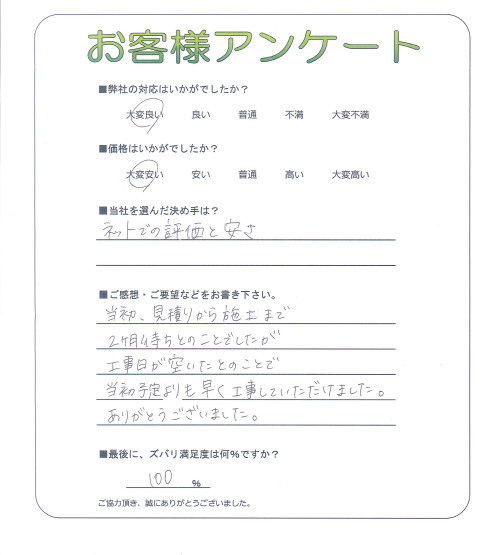 お客様アンケート
■弊社の対応はいかがでしたか？
大変良い 良い 普通 不満 大変不満
■価格はいかがでしたか？
大変安い 安い 普通 高い 大変高い
■当社を選んだ決め手は？
ネットでの評価と安さ
■ご感想・ご要望などをお書き下さい。
当初、見積りから施工まで
2ヶ月待ちとのことでしたが
工事日が空いたとのことで
当初予定よりも早く工事していただけました。
ありがとうございました。
■最後に、ズバリ満足度は何%ですか？
100 %
ご協力頂き、誠にありがとうございました。